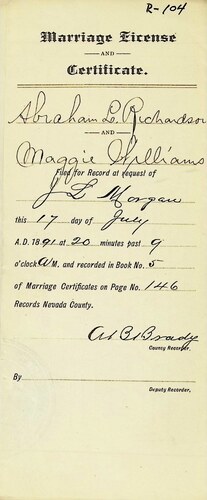 R-104
Marriage License
AND
Certificate.
Abraham L. Richardson
AND
Maggie Williams
Filed for Record at request of
J L Morgan
this 17 day of July
A.D. 1891 at 20 minutes past 9
o'clock A M. and recorded in Book No. 5
of Marriage Certificates on Page No. 146
Records Nevada County.
County Recorder.
By
Deputy Recorder.